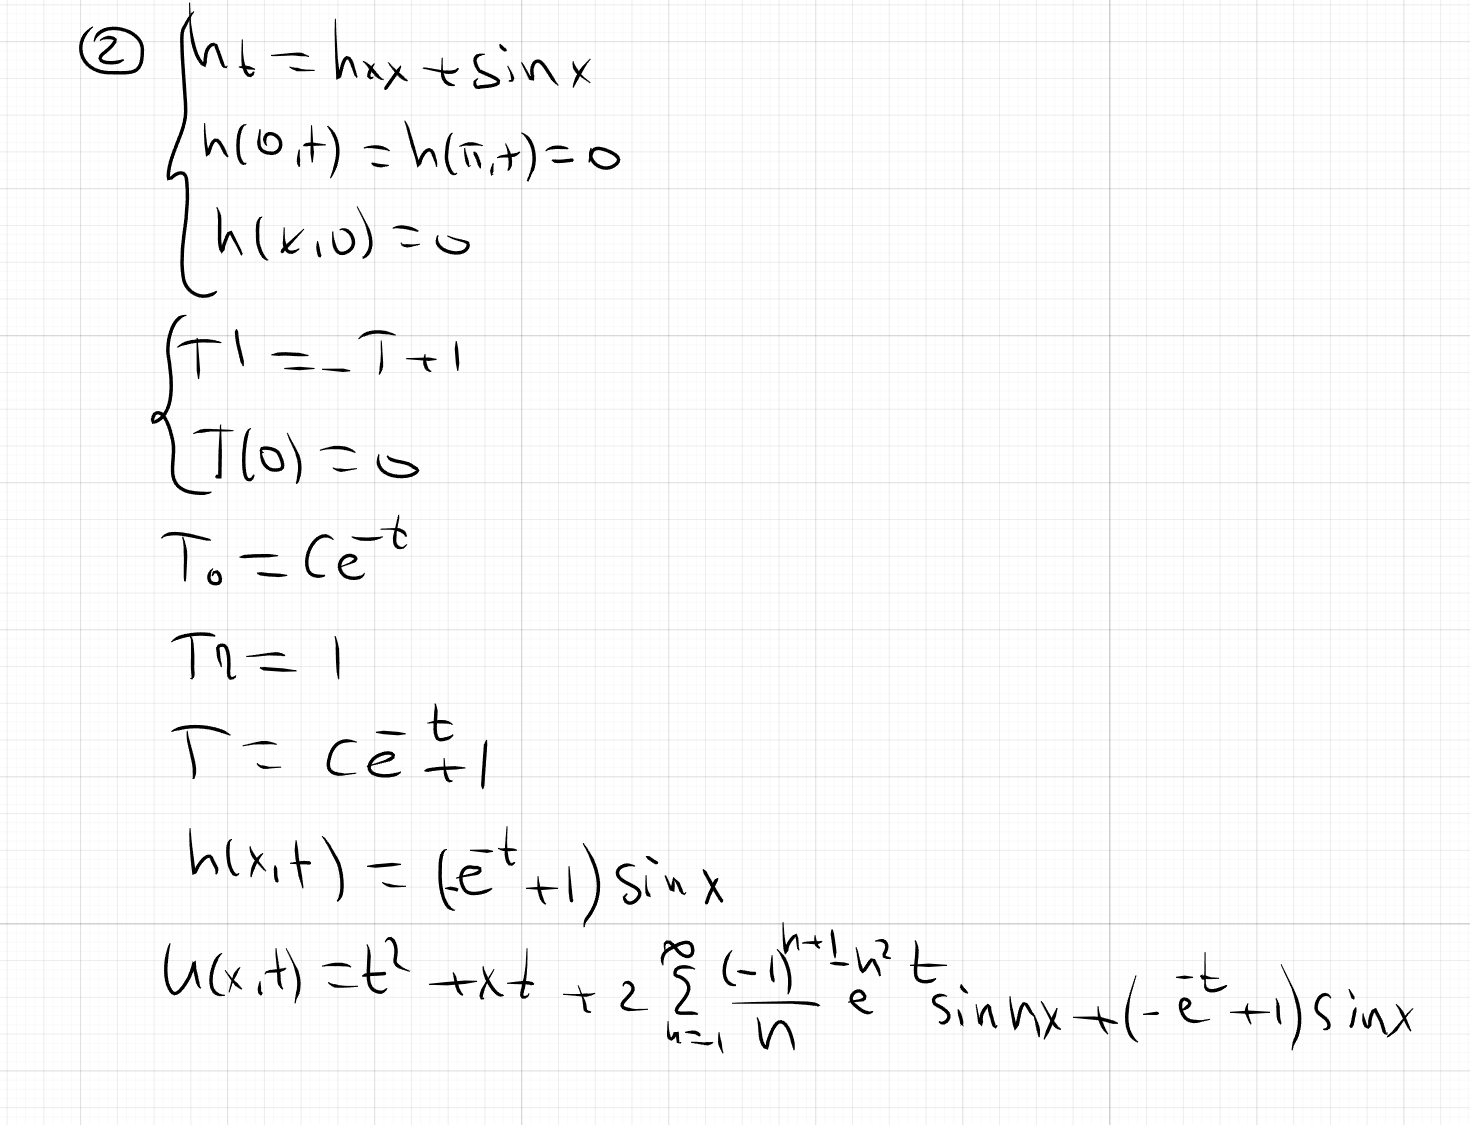 ② { h_t = h_xx + sin x
h(0,t) = h(π,t) = 0
h(x,0) = 0
{ T' = -T + 1
T(0) = 0
T₀ = Ce^{-t}
Tη = 1
T = Ce^{-t} + 1
h(x,t) = (-e^{-t} + 1) sin x
u(x,t) = t² + xt + 2 ∑_{n=1}^{∞} \frac{(-1)^{n+1}}{n} e^{-n² t} sin nx + (-e^{-t} + 1) sin x